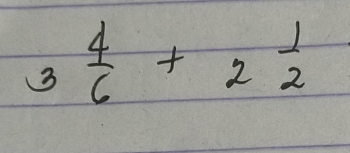 3 4/6 + 2 1/2